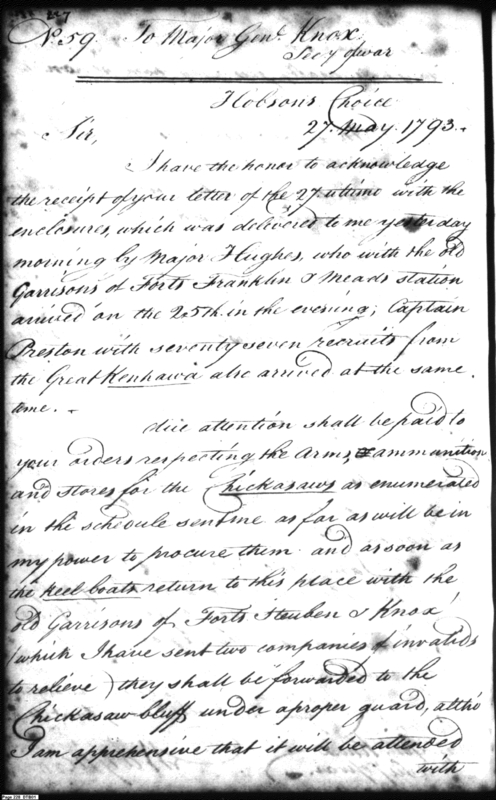 227
No. 59. To Major Genl. Knox
Secy of war
Hobsons Choice
27. May. 1793.
Sir,
I have the honor to acknowledge
the receipt of your letter of the 27 ultimo with the
enclosures, which was delivered to me yesterday
morning by Major Hughes, who with the old
Garrisons of Forts Franklin & Meads station
arrived on the 25th. in the evening; Captain
Preston with seventy seven recruits from
the Great Kenhawa also arrived at the same
time. -
due attention shall be paid to
your orders respecting the Arms, & ammunition
and stores for the Chickasaws as enumerated
in the schedule sent me as far as will be in
my power to procure them and as soon as
the keel boats return to this place with the
old Garrisons of Forts Steuben & Knox
(which I have sent two companies of invalids
to relieve) they shall be forwarded to the
Chickasaw bluff under a proper guard, altho
I am apprehensive that it will be attended
with